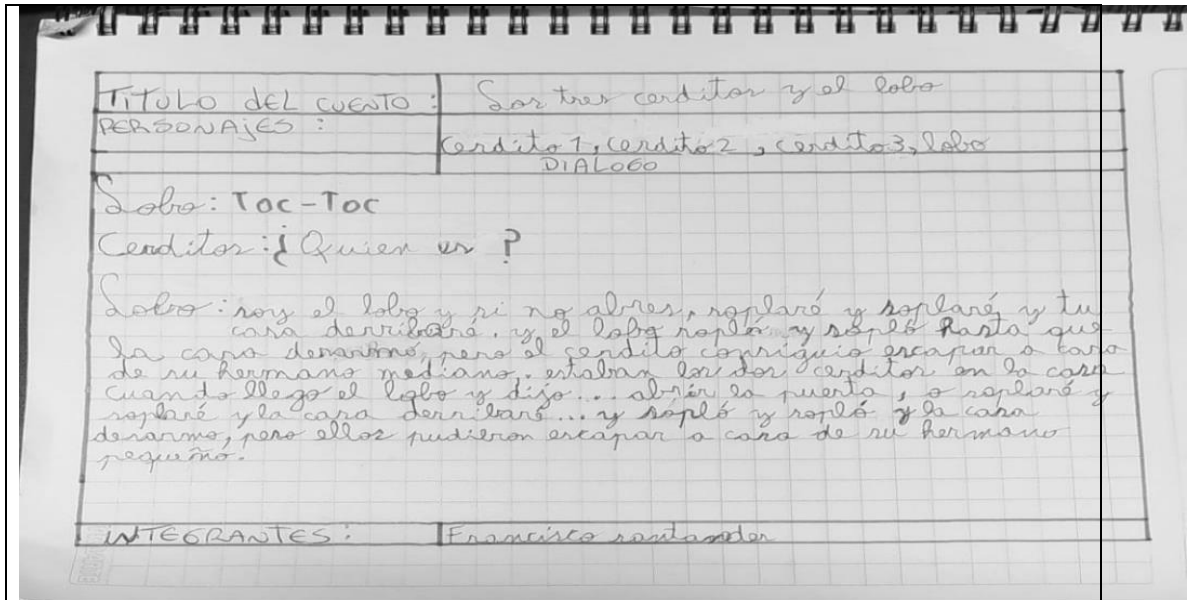 TíTULO dEL CUENTO : Los tres cerditos y el lobo
PERSONAjES :
Cerdito 1, cerdito 2, cerdito 3, lobo
DIALOGO
Lobo: Toc-Toc
Cerditos: ¿Quien es ?
Lobo: soy el lobo y si no abres, soplaré y soplaré y tu
casa derribaré. y el lobo sopló y sopló hasta que
la casa desarmó, pero el cerdito consiguio escapar a casa
de su hermano mediano. estaban los dos cerditos en la casa
cuando llego el lobo y dijo... abrir la puerta, o soplaré y
soplaré y la casa derribaré... y sopló y sopló y la casa
desarmo, pero ellos pudieron escapar a casa de su hermano
pequeño.
iNTEGRANTES : Francisco santander